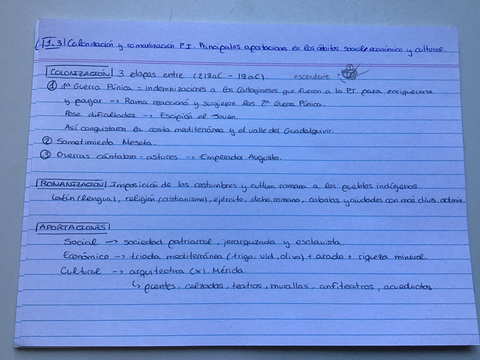 1.3 Colonización y romanización P.I. Principales aportaciones en los ámbitos social, económico y cultural.
COLONIZACIÓN 3 etapas entre (218aC - 19aC) ascendente
① 1ª Guerra Púnica = Indemnizaciones a los Cartagineses que fueron a la P.I para enriquecerse
y pagar → Roma reaccionó y surgieron las 2ª Guerra Púnica.
Pese dificultades → Escipión el Joven
Así conquistaron la costa mediterránea y el valle del Guadalquivir.
② Sometimiento Meseta.
③ Guerras cántabro-astures → Emperador Augusto.
ROMANIZACIÓN Imposición de las costumbres y cultura romana a los pueblos indígenas
Latín (lengua), religión (cristianismo), ejército, dcho.romano, colonias y ciudades con más divis. admin.
APORTACIONES
Social → sociedad patriarcal, jerarquizada y esclavista.
Económico → triada mediterránea (trigo, vid, oliva) + arado + riqueza mineral
Cultural → arquitectura (x). Mérida
↳ puentes, calzadas, teatros, murallas, anfiteatros, acueductos